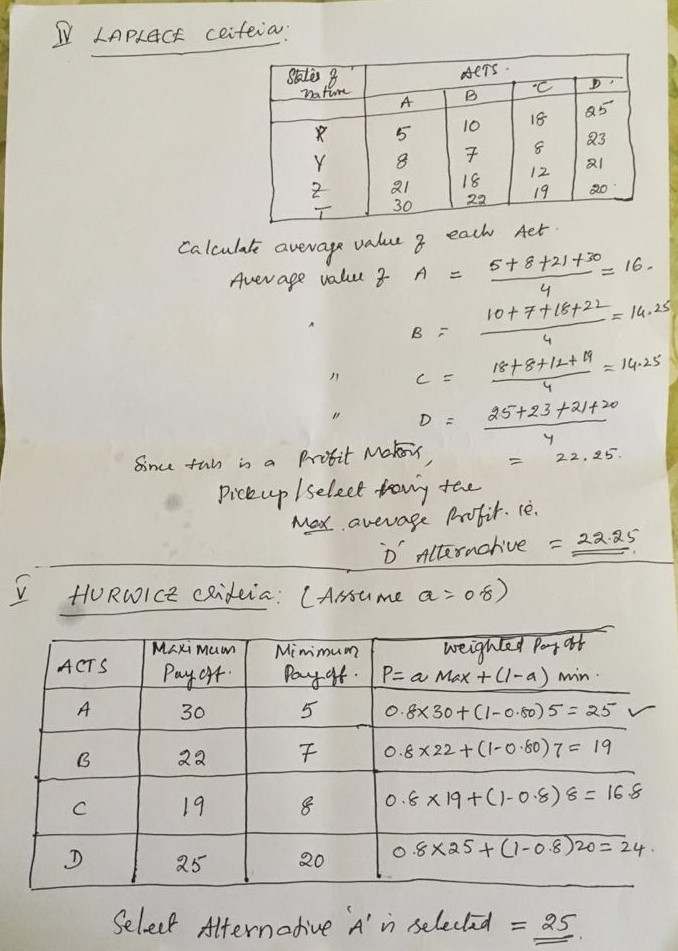 IV LAPLACE Criteria:
States of nature ACTS.
A B C D.
X 5 10 18 25
Y 8 7 8 23
Z 21 18 12 21
T 30 22 19 20.
Calculate average value of each Act.
Average value of A = 5+8+21+30 / 4 = 16.
" B = 10+7+18+22 / 4 = 14.25
" C = 18+8+12+19 / 4 = 14.25
" D = 25+23+21+20 / 4
Since this is a Profit Matrix, = 22.25.
Pickup/Select having the
Max average Profit. ie.
'D' Alternative = 22.25
V HURWICZ Criteria: (Assume a = 0.8)
ACTS Maximum Payoff. Minimum Payoff. Weighted Pay off P = a Max + (1-a) min.
A 30 5 0.8x30+(1-0.80)5 = 25 ✓
B 22 7 0.8x22+(1-0.80)7 = 19
C 19 8 0.8x19+(1-0.8)8 = 16.8
D 25 20 0.8x25+(1-0.8)20 = 24.
Select Alternative 'A' is selected = 25